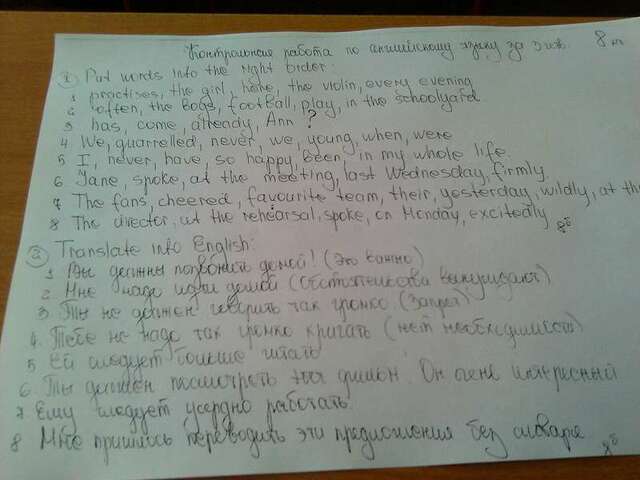 Контрольная работа по английскому языку за 3 чтв. 8 кл.
① Put words into the right order:
1 practises, the girl, home, the violin, every evening
2 often, the boys, football, play, in the schoolyard
3 has, come, already, Ann ?
4 We, quarrelled, never, we, young, when, were
5 I, never, have, so happy, been, in my whole life.
6. Jane, spoke, at the meeting, last Wednesday, firmly.
7. The fans, cheered, favourite team, their, yesterday, wildly, at the
8 The director, at the rehearsal, spoke, on Monday, excitedly 8б
② Translate into English:
1. Вы должны позвонить домой! (Это важно)
2. Мне надо идти домой (обстоятельства вынуждают)
3. Ты не должен говорить так громко (Запрет)
4. Тебе не надо так громко кричать (нет необходимости)
5 Ей следует больше читать
6. Ты должен посмотреть этот фильм. Он очень интересный
7 Ему следует усердно работать.
8 Мне пришлось переводить эти предложения без словаря 8б